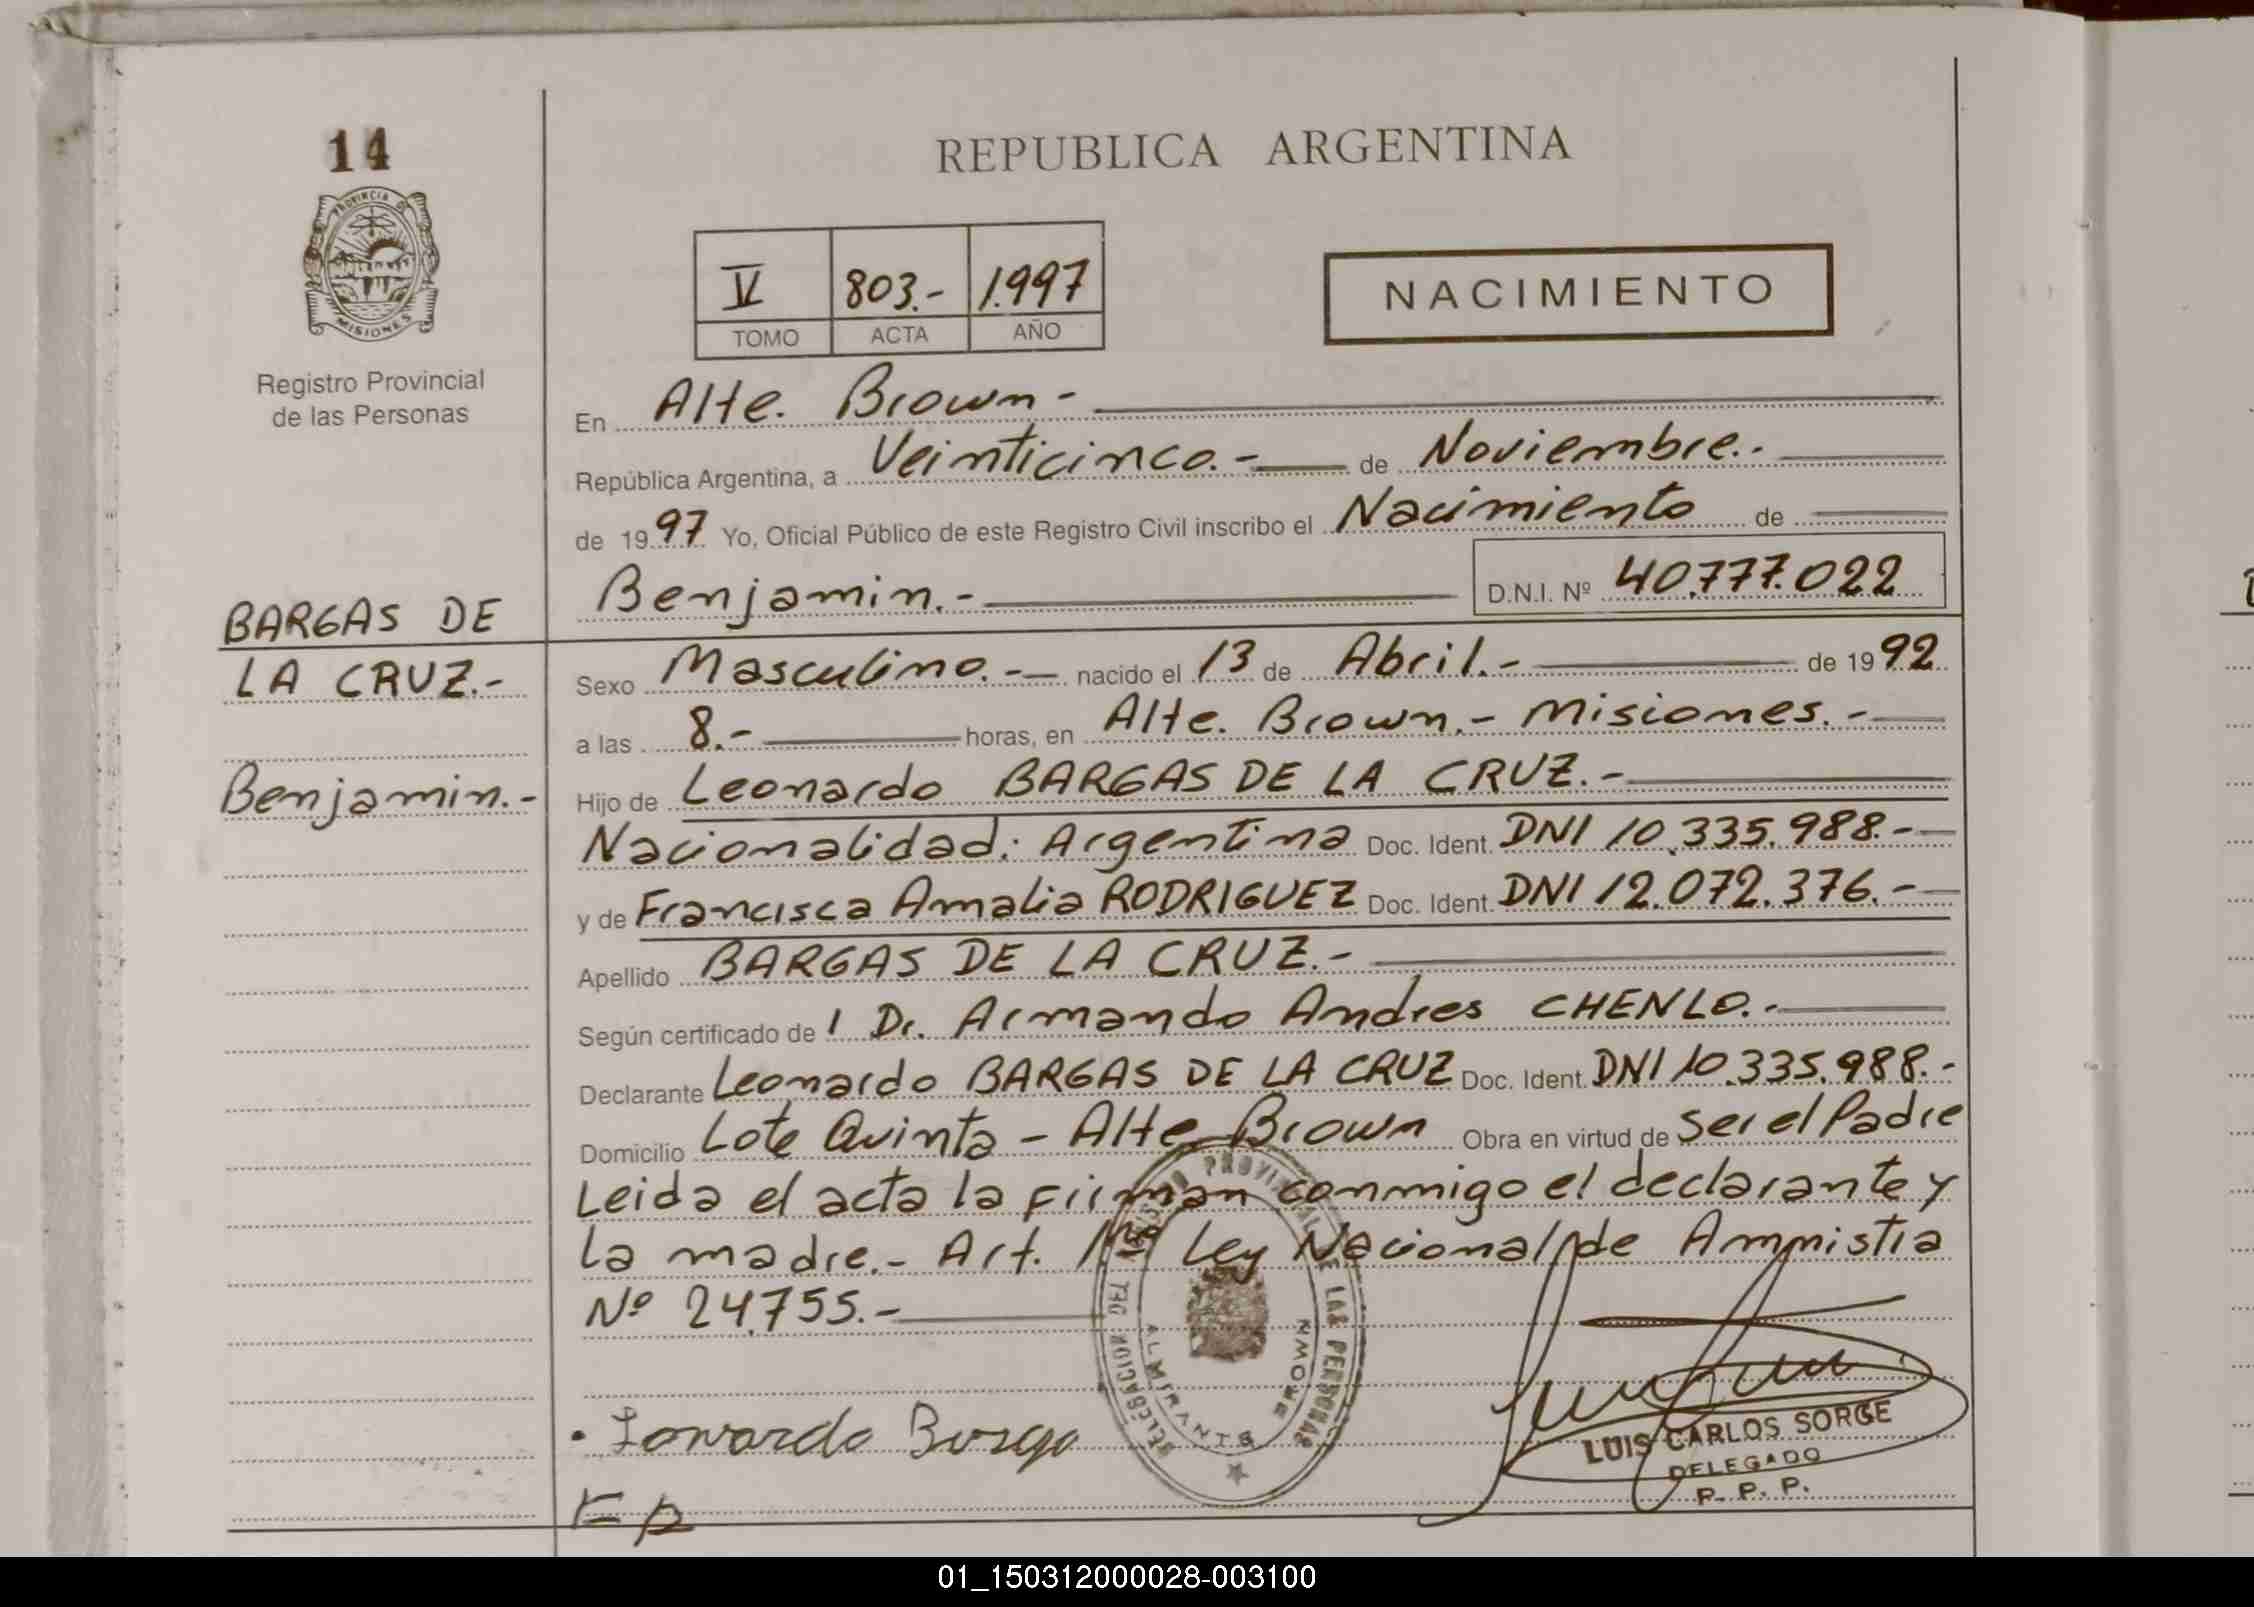 14
REPUBLICA ARGENTINA
PROVINCIA DE
MISIONES
Registro Provincial
de las Personas
V 803.- 1.997
TOMO ACTA AÑO
NACIMIENTO
En Alte. Brown-
República Argentina, a Veinticinco.- de Noviembre.-
de 1997 Yo, Oficial Público de este Registro Civil inscribo el Nacimiento de
Benjamin.- D.N.I. Nº 40.777.022
BARGAS DE
LA CRUZ.-
Benjamin.-
Sexo Masculino.- nacido el 13 de Abril.- de 1992
a las 8.- horas, en Alte. Brown.- Misiones.-
Hijo de Leonardo BARGAS DE LA CRUZ.-
Nacionalidad: Argentina Doc. Ident. DNI 10.335.988.-
y de Francisca Amalia RODRIGUEZ Doc. Ident. DNI 12.072.376.-
Apellido BARGAS DE LA CRUZ.-
Según certificado de 1 Dr. Armando Andres CHENLO.-
Declarante Leonardo BARGAS DE LA CRUZ Doc. Ident. DNI 10.335.988.-
Domicilio Lote Quinta - Alte Brown Obra en virtud de ser el Padre
Leida el acta la firman conmigo el declarante y
la madre.- Art. Ley Nacional de Amnistia
Nº 24.755.-
REGISTRO PROVINCIAL DE LAS PERSONAS
DELEGACION
ALMIRANTE BROWN
LUIS CARLOS SORGE
DELEGADO
R. P. P.
01_150312000028-003100